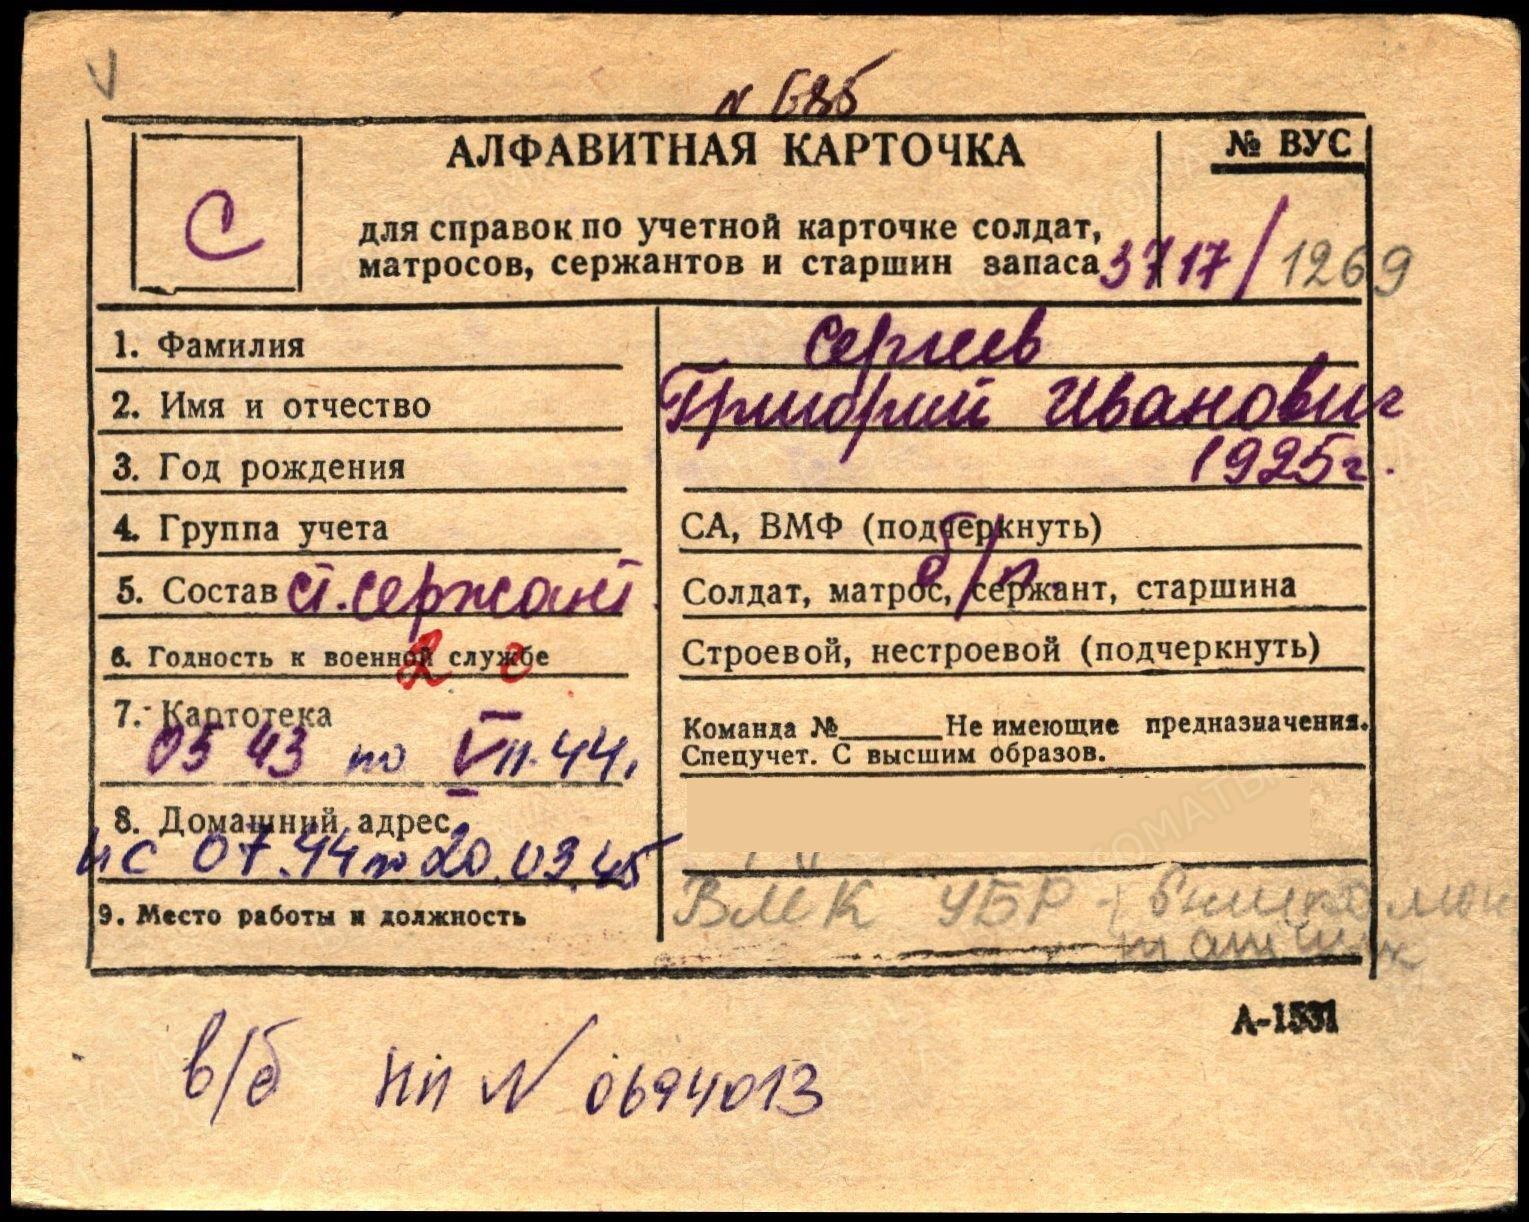 № 685
АЛФАВИТНАЯ КАРТОЧКА
№ ВУС
С
для справок по учетной карточке солдат,
матросов, сержантов и старшин запаса
3717/1269
1. Фамилия Сергеев
2. Имя и отчество Григорий Иванович
3. Год рождения 1925г.
4. Группа учета СА, ВМФ (подчеркнуть)
б/п.
5. Состав ст. сержант Солдат, матрос, сержант, старшина
6. Годность к военной службе Строевой, нестроевой (подчеркнуть)
2 с
7. Картотека Команда № Не имеющие предназначения.
Спецучет. С высшим образов.
05 43 по VII.44.
8. Домашний адрес
и с 07.44 по 20.03.45
9. Место работы и должность ВМК УБР - вышкомон
тажник
А-1531
в/б НП № 0694013